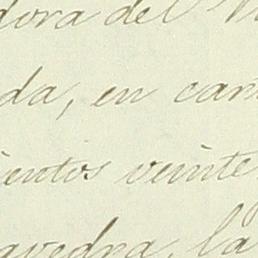 dora del V
da, en car
ientos veinte
avedra, la